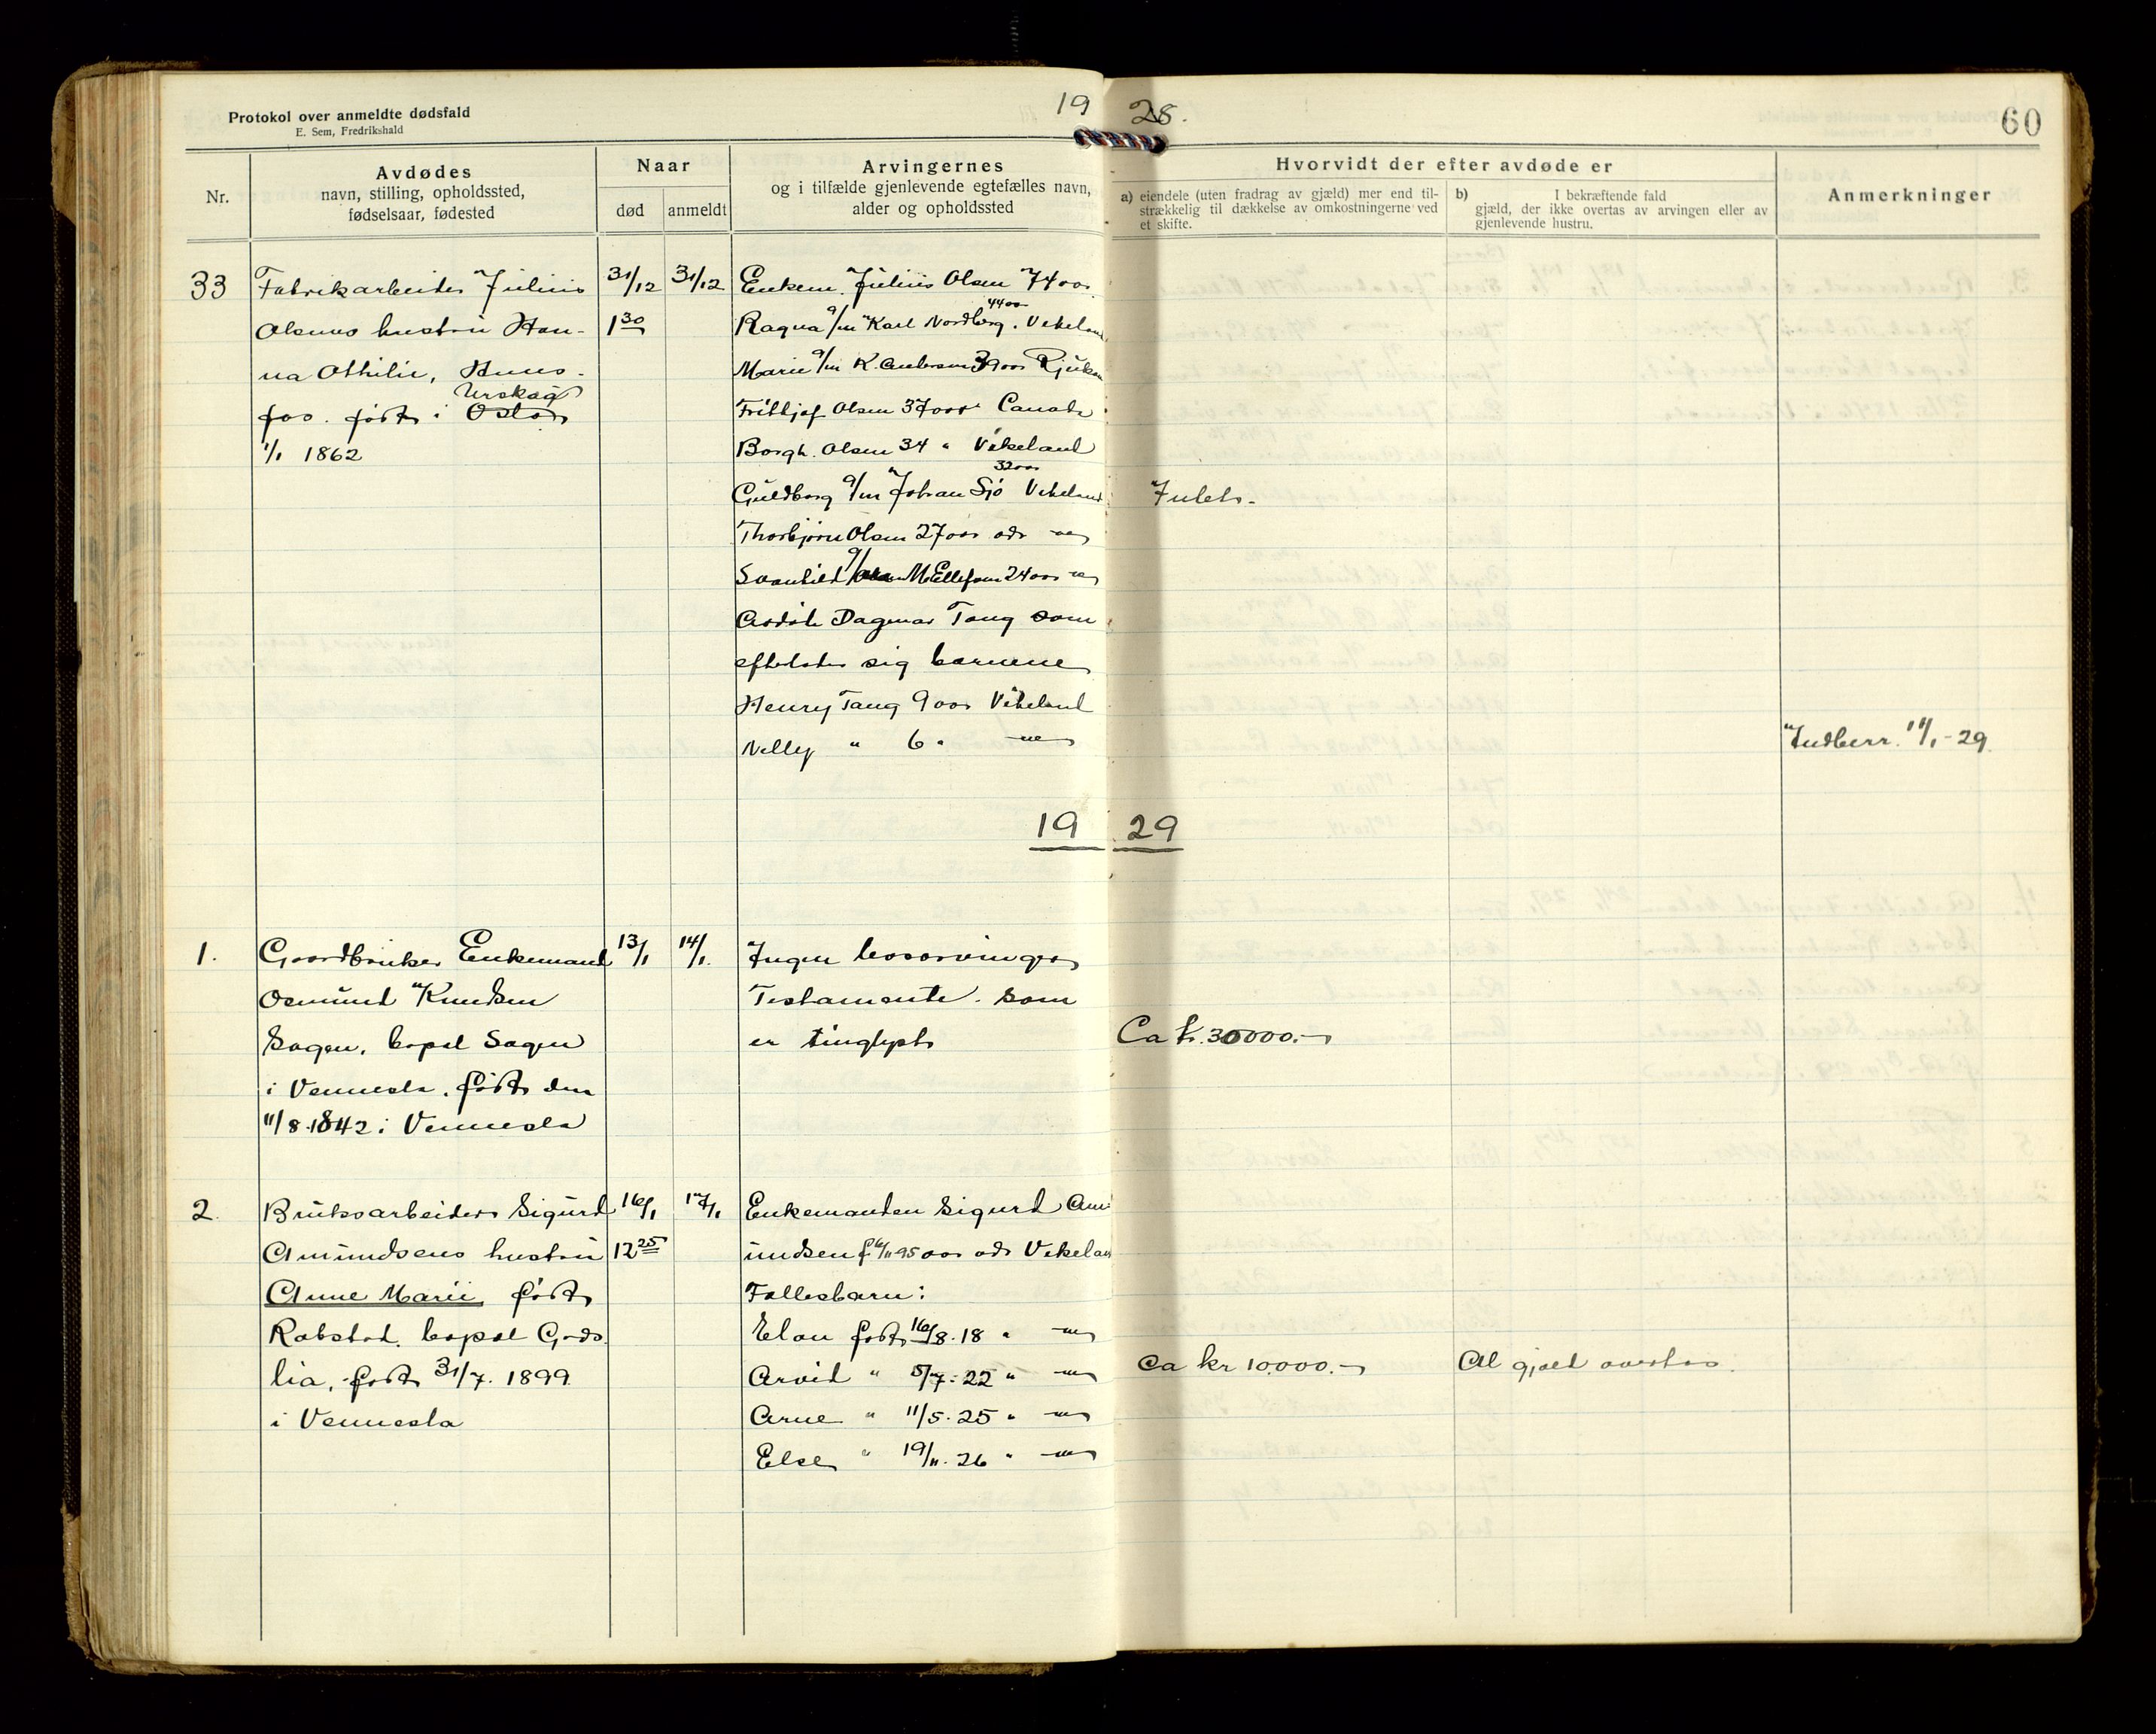 Protokol over anmeldte dødsfald
E. Sem, Fredrikshald
19 28.
60
Nr.
Avdødes
navn, stilling, opholdssted,
fødselsaar, fødested
Naar
død
anmeldt
Arvingernes
og i tilfælde gjenlevende egtefælles navn,
alder og opholdssted
Hvorvidt der efter avdøde er
a) eiendele (uten fradrag av gjæld) mer end til-
strækkelig til dækkelse av omkostningerne ved
et skifte.
b) I bekræftende fald
gjæld, der ikke overtas av arvingen eller av
gjenlevende hustru.
Anmerkninger
33
Fabrikarbeider Julius
Olsens hustru Han-
na Othilie, Huns-
Urskog
fos. født i Oslo
1/1 1862
31/12
1 30
31/12
Enkem. Julius Olsen 74 aar
44 aar
Ragna g/m Karl Nordberg. Vikeland
Marie g/m K. Andersen 39 aar Rjukan
Frithjof Olsen 37 aar Canada
Borgh. Olsen 34 " Vikeland
32 aar
Guldborg g/m Johan Sjö Vikeland
Thorbjörn Olsen 27 aar ads
Svanhild g/m M Ellefsen 24 aar
Avdöde Dagmar Tang som
efterlater sig barnene
Henry Tang 9 aar Vikeland
Nelly " 6 "
Intet.
Indberr. 11/1-29
19 29
1.
Gaardbruker Enkemand
Osmund Knudsen
Sagen, bopæl Sagen
i Vennesla. født den
11/8 1842 i Vennesla
13/1
14/1.
Ingen livsarvinger
Testamente. som
er tinglyst
Ca kr. 30000.-
2.
Bruksarbeider Sigurd
Amundsens hustru
Anne Marie født
Robstad. bopæl Grds
lia, født 31/7. 1899
i Vennesla
16/1
12 25
17/1
Enkemanden Sigurd Am
undsen f 6/11 95 aar ads Vikeland
Fellesbarn:
Elan født 16/8. 18 "
Arvid " 5/7. 22 "
Arne " 11/5. 25 "
Else " 19/11. 26 "
Ca kr 10000.-
Al gjæld overtas.